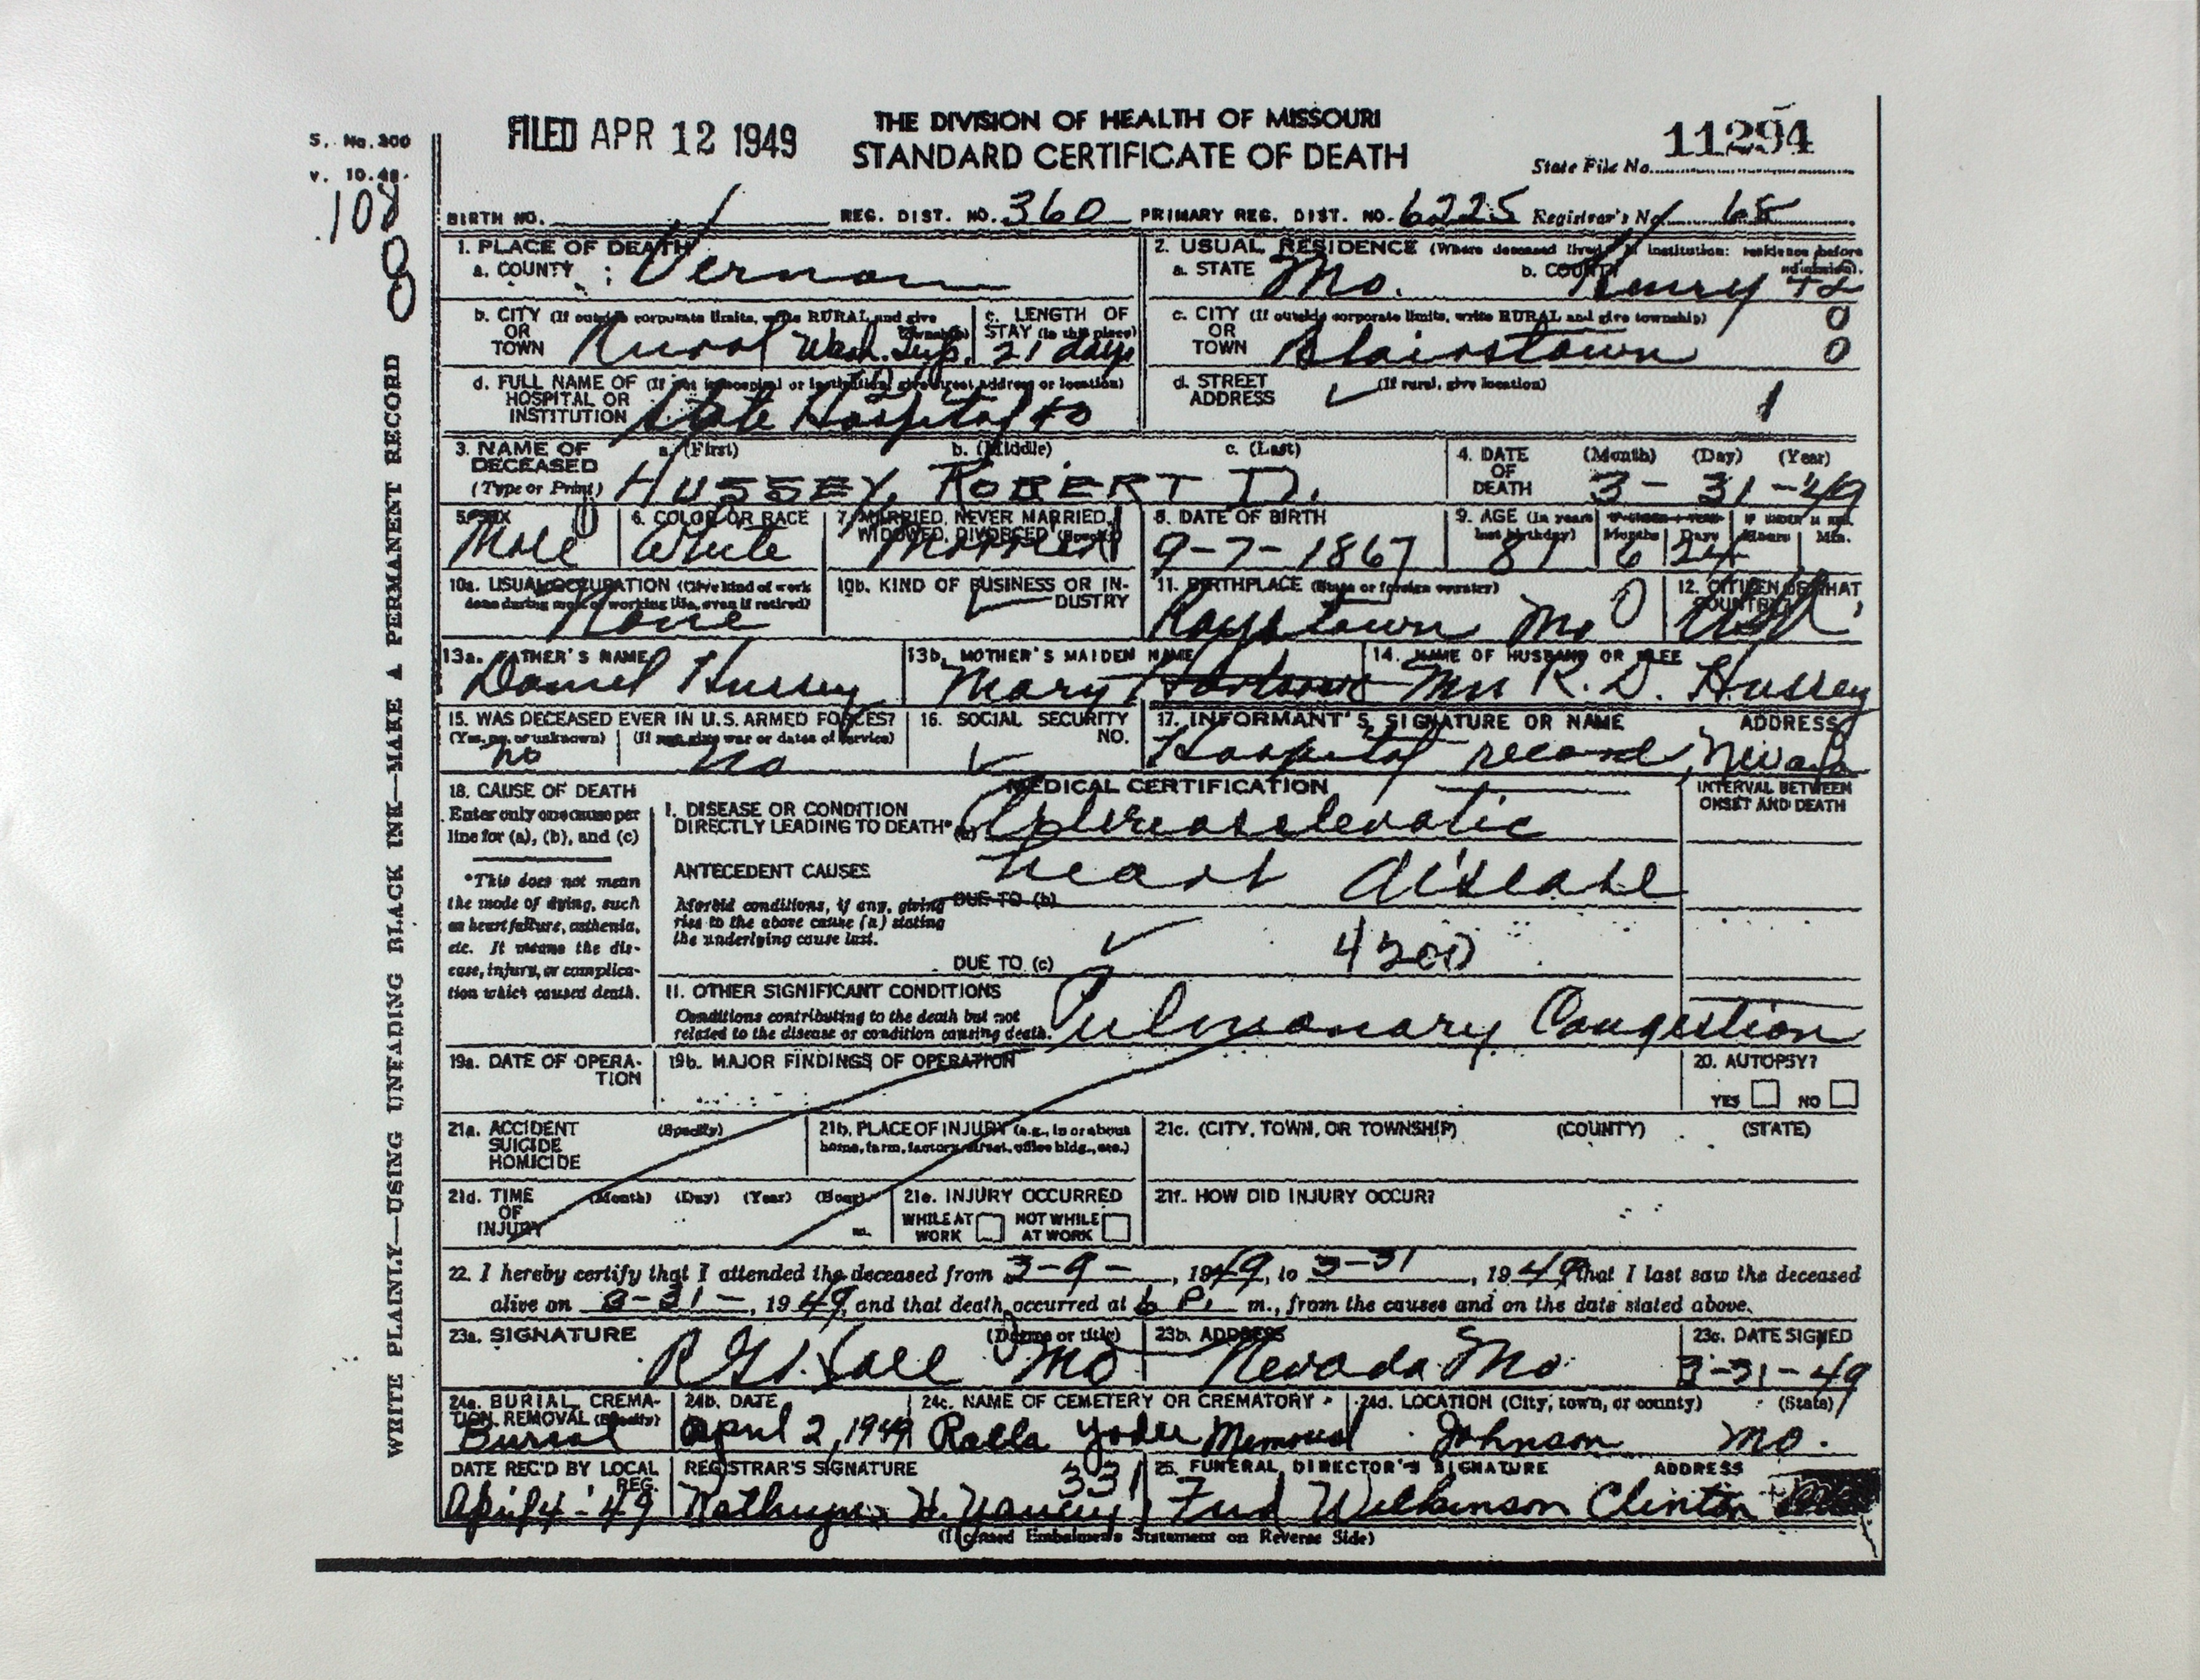 S. No. 300
v. 10.48.
108
8
FILED APR 12 1949
THE DIVISION OF HEALTH OF MISSOURI
STANDARD CERTIFICATE OF DEATH
State File No. 11294
BIRTH NO. REG. DIST. NO. 360 PRIMARY REG. DIST. NO. 6225 Registrar's No. 68
WRITE PLAINLY—USING UNFADING BLACK INK—MAKE A PERMANENT RECORD
1. PLACE OF DEATH
a. COUNTY Vernon
2. USUAL RESIDENCE (Where deceased lived. If institution: residence before admission).
a. STATE Mo. b. COUNTY Henry
b. CITY (If outside corporate limits, write RURAL and give township) OR TOWN Rural Wash. Twp.
c. LENGTH OF STAY (in this place) 21 days
c. CITY (If outside corporate limits, write RURAL and give township) OR TOWN Blairstown
0
0
d. FULL NAME OF (If not in hospital or institution, give street address or location) HOSPITAL OR INSTITUTION State Hospital
d. STREET ADDRESS (If rural, give location)
1
3. NAME OF DECEASED (Type or Print) a. (First) b. (Middle) c. (Last)
HUSSEY, ROBERT D.
4. DATE OF DEATH (Month) (Day) (Year)
3-31-49
5. SEX Male
6. COLOR OR RACE White
7. MARRIED, NEVER MARRIED, WIDOWED, DIVORCED (Specify) Married
8. DATE OF BIRTH 9-7-1867
9. AGE (In years last birthday) 81 IF UNDER 1 YEAR Months 6 Days 24 IF UNDER 24 HRS. Hours Min.
10a. USUAL OCCUPATION (Give kind of work done during most of working life, even if retired) None
10b. KIND OF BUSINESS OR INDUSTRY
11. BIRTHPLACE (State or foreign country) Raystown Mo 0
12. CITIZEN OF WHAT COUNTRY? USA
13a. FATHER'S NAME Daniel Hussey
13b. MOTHER'S MAIDEN NAME Mary
14. NAME OF HUSBAND OR WIFE Mrs R. D. Hussey
15. WAS DECEASED EVER IN U.S. ARMED FORCES?
(Yes, no, or unknown) (If yes, give war or dates of service)
no no
16. SOCIAL SECURITY NO.
17. INFORMANT'S SIGNATURE OR NAME ADDRESS
Hospital record, Nevada
18. CAUSE OF DEATH
Enter only one cause per line for (a), (b), and (c)
*This does not mean the mode of dying, such as heart failure, asthenia, etc. It means the disease, injury, or complication which caused death.
MEDICAL CERTIFICATION
INTERVAL BETWEEN ONSET AND DEATH
I. DISEASE OR CONDITION DIRECTLY LEADING TO DEATH* (a)
ANTECEDENT CAUSES heart disease
Morbid conditions, if any, giving rise to the above cause (a) stating the underlying cause last.
DUE TO (b)
DUE TO (c) 4200
II. OTHER SIGNIFICANT CONDITIONS
Conditions contributing to the death but not related to the disease or condition causing death.
Pulmonary Congestion
19a. DATE OF OPERATION
19b. MAJOR FINDINGS OF OPERATION
20. AUTOPSY?
YES NO
21a. ACCIDENT SUICIDE HOMICIDE (Specify)
21b. PLACE OF INJURY (e.g., in or about home, farm, factory, street, office bldg., etc.)
21c. (CITY, TOWN, OR TOWNSHIP) (COUNTY) (STATE)
21d. TIME OF INJURY (Month) (Day) (Year) (Hour) m.
21e. INJURY OCCURRED
WHILE AT WORK NOT WHILE AT WORK
21f. HOW DID INJURY OCCUR?
22. I hereby certify that I attended the deceased from 3-9-, 1949, to 3-31, 1949, that I last saw the deceased
alive on 3-31-, 1949, and that death occurred at 6 P. m., from the causes and on the date stated above.
23a. SIGNATURE (Degree or title)
Hall MD
23b. ADDRESS Nevada Mo
23c. DATE SIGNED 3-31-49
24a. BURIAL, CREMATION, REMOVAL (Specify) Burial
24b. DATE April 2, 1949
24c. NAME OF CEMETERY OR CREMATORY Yoder Memorial
24d. LOCATION (City, town, or county) (State) Johnson Mo.
DATE REC'D BY LOCAL REG. April 4-'49
REGISTRAR'S SIGNATURE 331
Kathryn H. Yancey
25. FUNERAL DIRECTOR'S SIGNATURE ADDRESS
Fred Wilkinson Clinton
(Licensed Embalmer's Statement on Reverse Side)